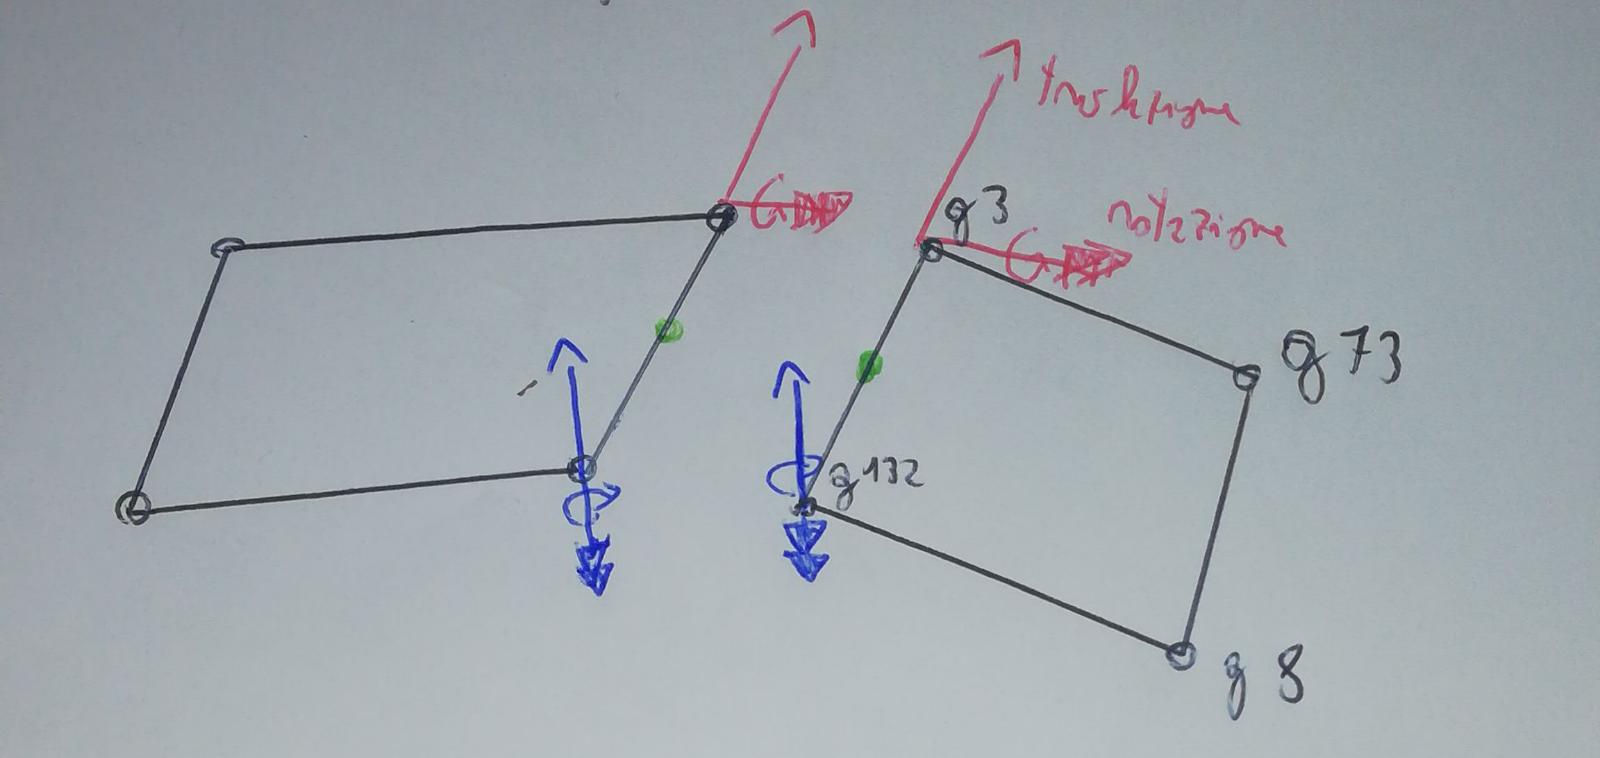 traslazione
g 3
rotazione
g 73
g 132
g 8